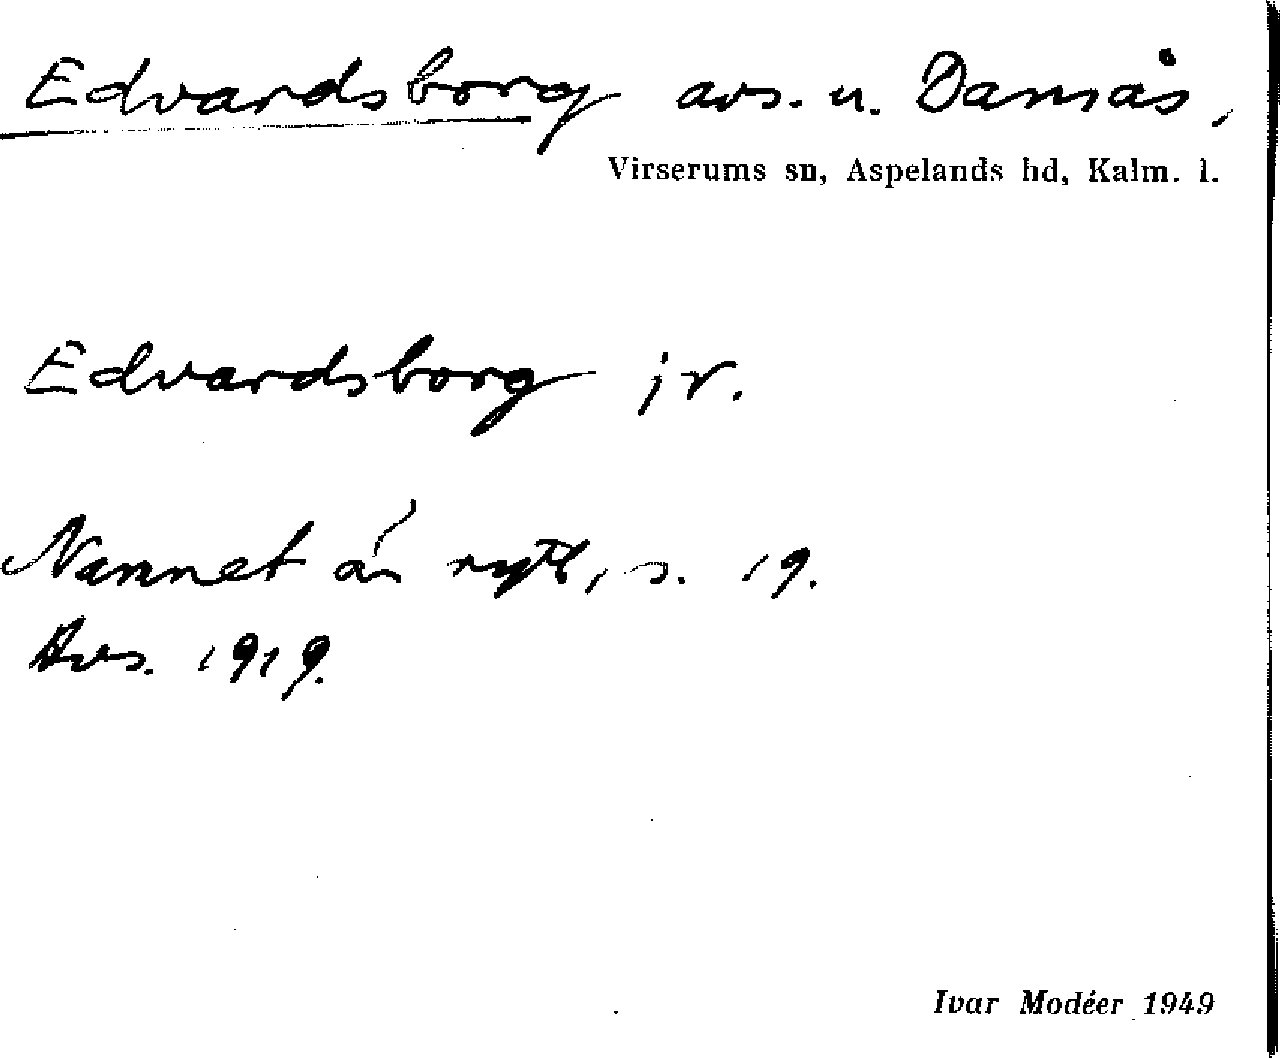 Edvardsborg avs. u. Damsås,
Virserums sn, Aspelands hd, Kalm. l.
Edvardsborg jr.
Namnet är nytt, s. 19.
Avs. 1919.
Ivar Modéer 1949